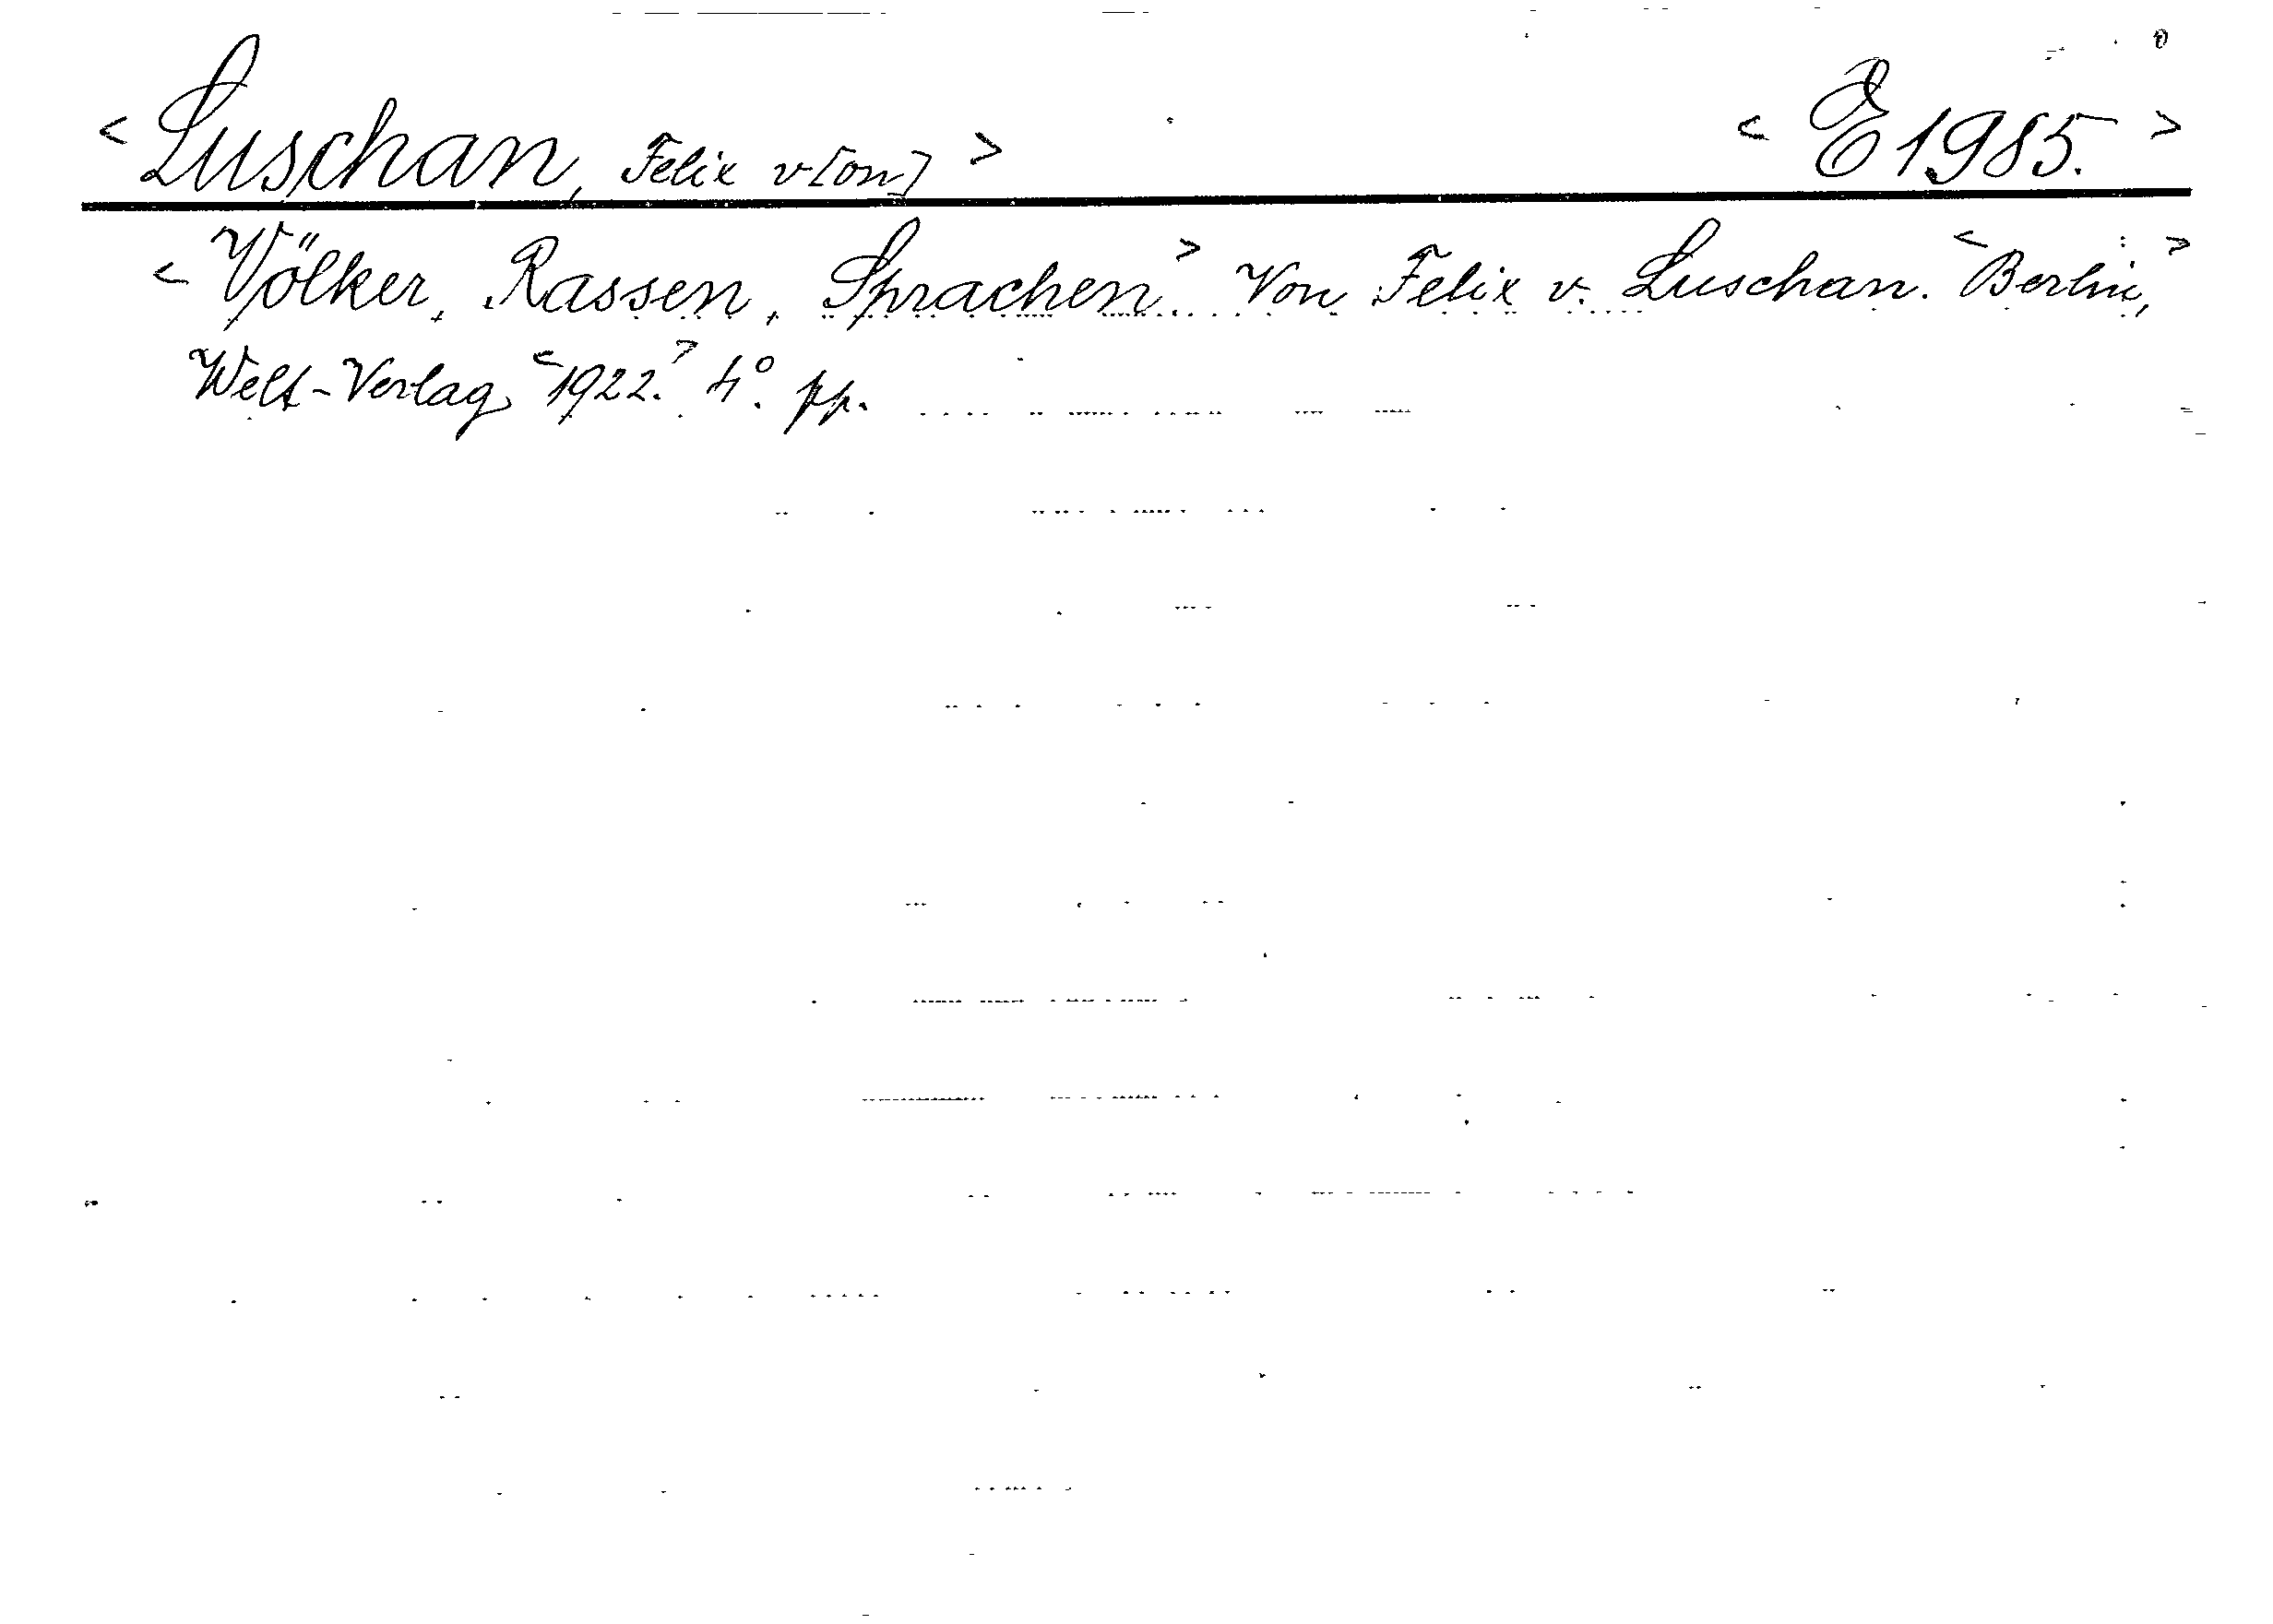 < Luschan, Felix v[on] > < E 1985. >
< Völker, Rassen, Sprachen. > Von Felix v. Luschan. < Berlin, >
Welt-Verlag, < 1922. > 4°. pp.